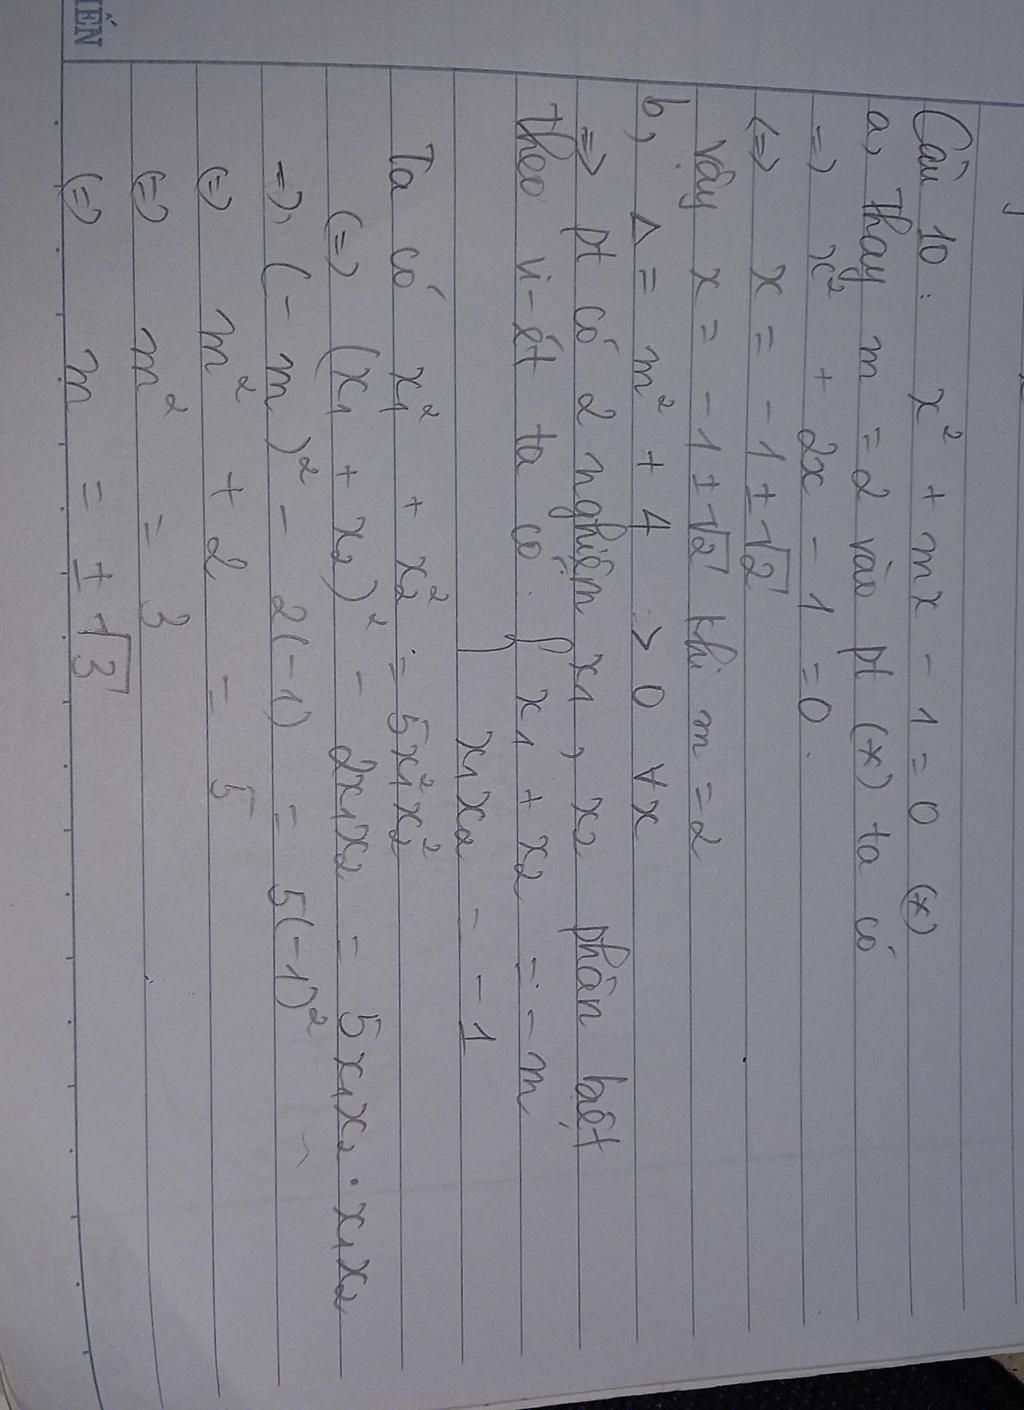 IẾN
Câu 10: x² + mx - 1 = 0 (*)
a, Thay m = 2 vào pt (*) ta có
=> x² + 2x - 1 = 0.
(=) x = -1 ± √2
Vậy x = -1 ± √2 khi m = 2
b, Δ = m² + 4 > 0 ∀x
=> pt có 2 nghiệm x₁, x₂ phân biệt
Theo vi-ét ta có. { x₁ + x₂ = -m
x₁x₂ = -1
Ta có x₁² + x₂² = 5x₁²x₂²
(=) (x₁ + x₂)² - 2x₁x₂ = 5x₁x₂ . x₁x₂
=> (-m)² - 2(-1) = 5(-1)²
(=) m² + 2 = 5
(=) m² = 3
(=) m = ±√3